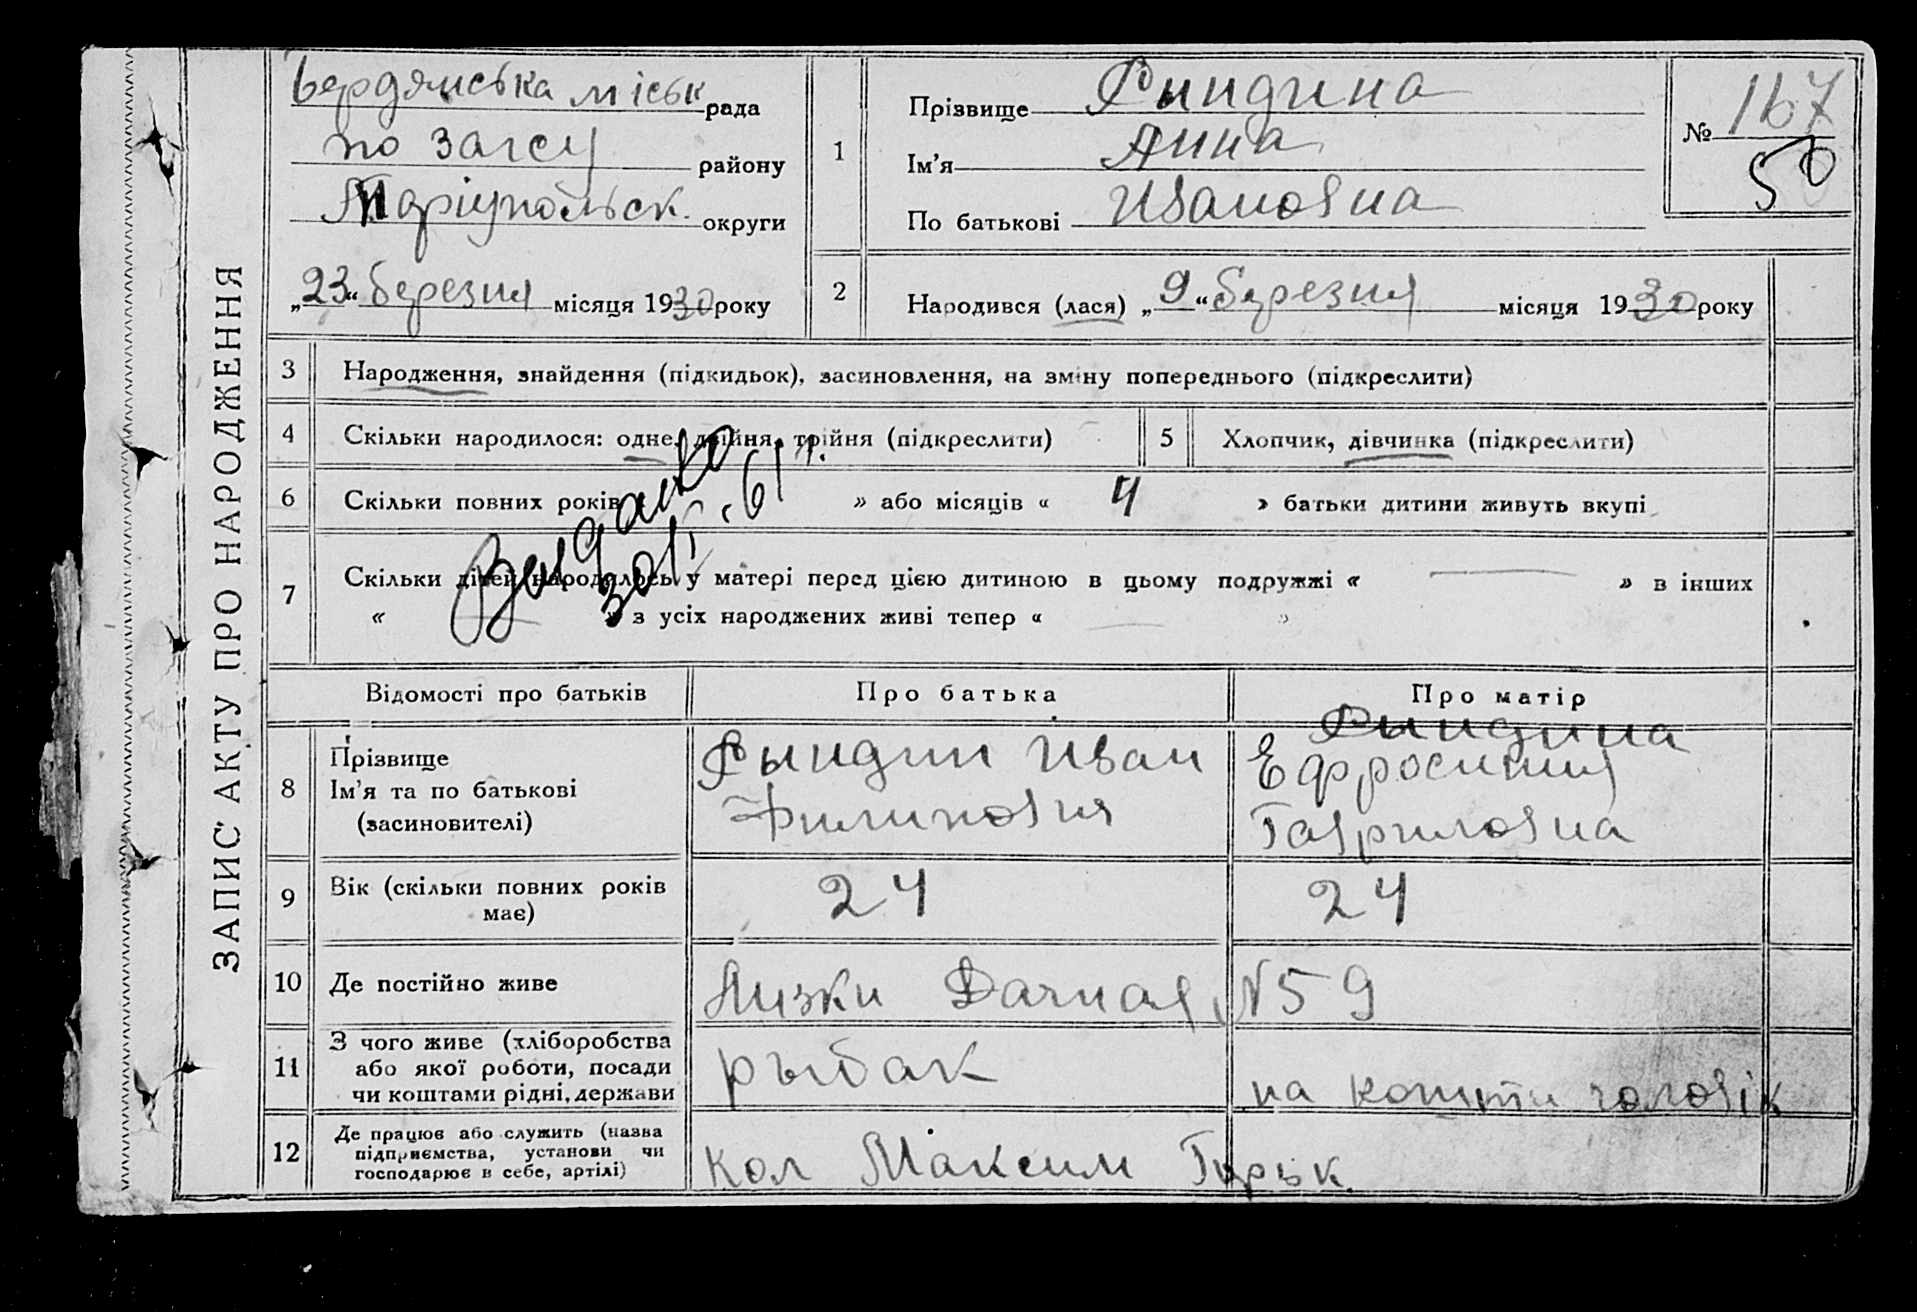 ЗАПИС АКТУ ПРО НАРОДЖЕННЯ
Бердянська міськ рада
по загсу району
Маріупольск. округи
„23“ березня місяця 1930 року
1
Прізвище Рындина
Ім’я Анна
По батькові Ивановна
№ 167
50
2
Народився (лася) „9“ березня місяця 1930 року
3 Народження, знайдення (підкидьок), засиновлення, на зміну попереднього (підкреслити)
4 Скільки народилося: одне, двійня, трійня (підкреслити)
5 Хлопчик, дівчинка (підкреслити)
6 Скільки повних років » або місяців « 4 » батьки дитини живуть вкупі
7 Скільки дітей народилось у матері перед цією дитиною в цьому подружжі « — » в інших
« — » з усіх народжених живі тепер « — »
Відомості про батьків Про батька Про матір
8 Прізвище
Ім’я та по батькові
(засиновителі)
Рындин Иван
Филипповия
Рындина
Ефросиния
Гавриловна
9 Вік (скільки повних років має)
24 24
10 Де постійно живе
Лизки Дачная, N 59
11 З чого живе (хліборобства
або якої роботи, посади
чи коштами рідні, держави
рыбак
на кошти чоловік
12 Де працює або служить (назва
підприємства, установи чи
господарює в себе, артілі)
Кол Максим Горьк.